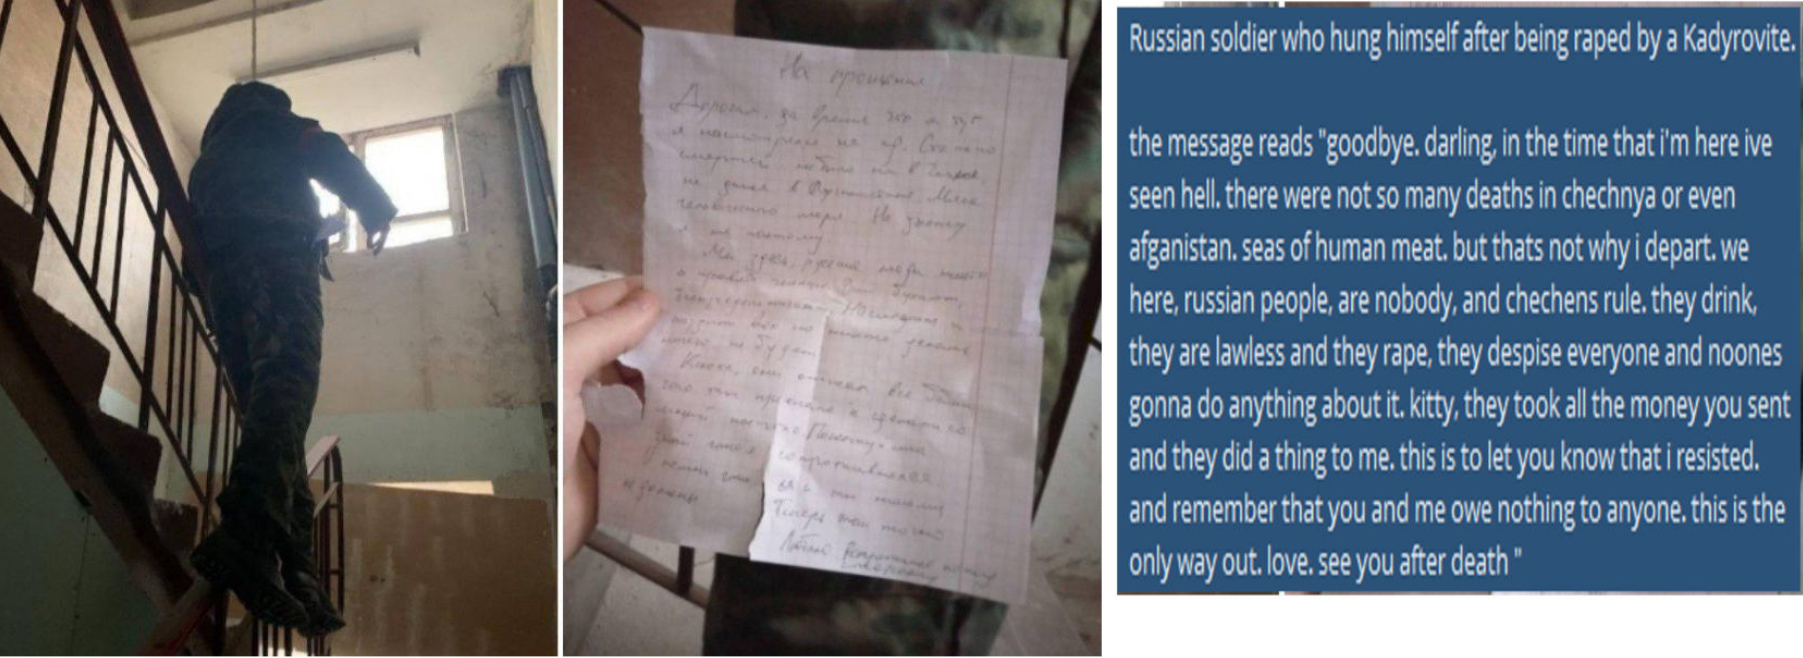 На прощение
Дорогая, за время что я тут
я насмотрелся на ад. Столько
смертей небыло ни в Чечне,
не даже в Афганистане. Мясо
море. Но ухожу
я не поэтому.
Мы здесь, русские люди никто
а правят чеченцы. Они бухают,
никто делать
ничего не будет
Киска, они все
что ты прислала и сделали со
мной
знай что я сопротивлялся
и помни что
не должны
Теперь только
Люблю
Russian soldier who hung himself after being raped by a Kadyrovite.
the message reads "goodbye. darling, in the time that i'm here ive
seen hell. there were not so many deaths in chechnya or even
afganistan. seas of human meat. but thats not why i depart. we
here, russian people, are nobody, and chechens rule. they drink,
they are lawless and they rape, they despise everyone and noones
gonna do anything about it. kitty, they took all the money you sent
and they did a thing to me. this is to let you know that i resisted.
and remember that you and me owe nothing to anyone. this is the
only way out. love. see you after death "